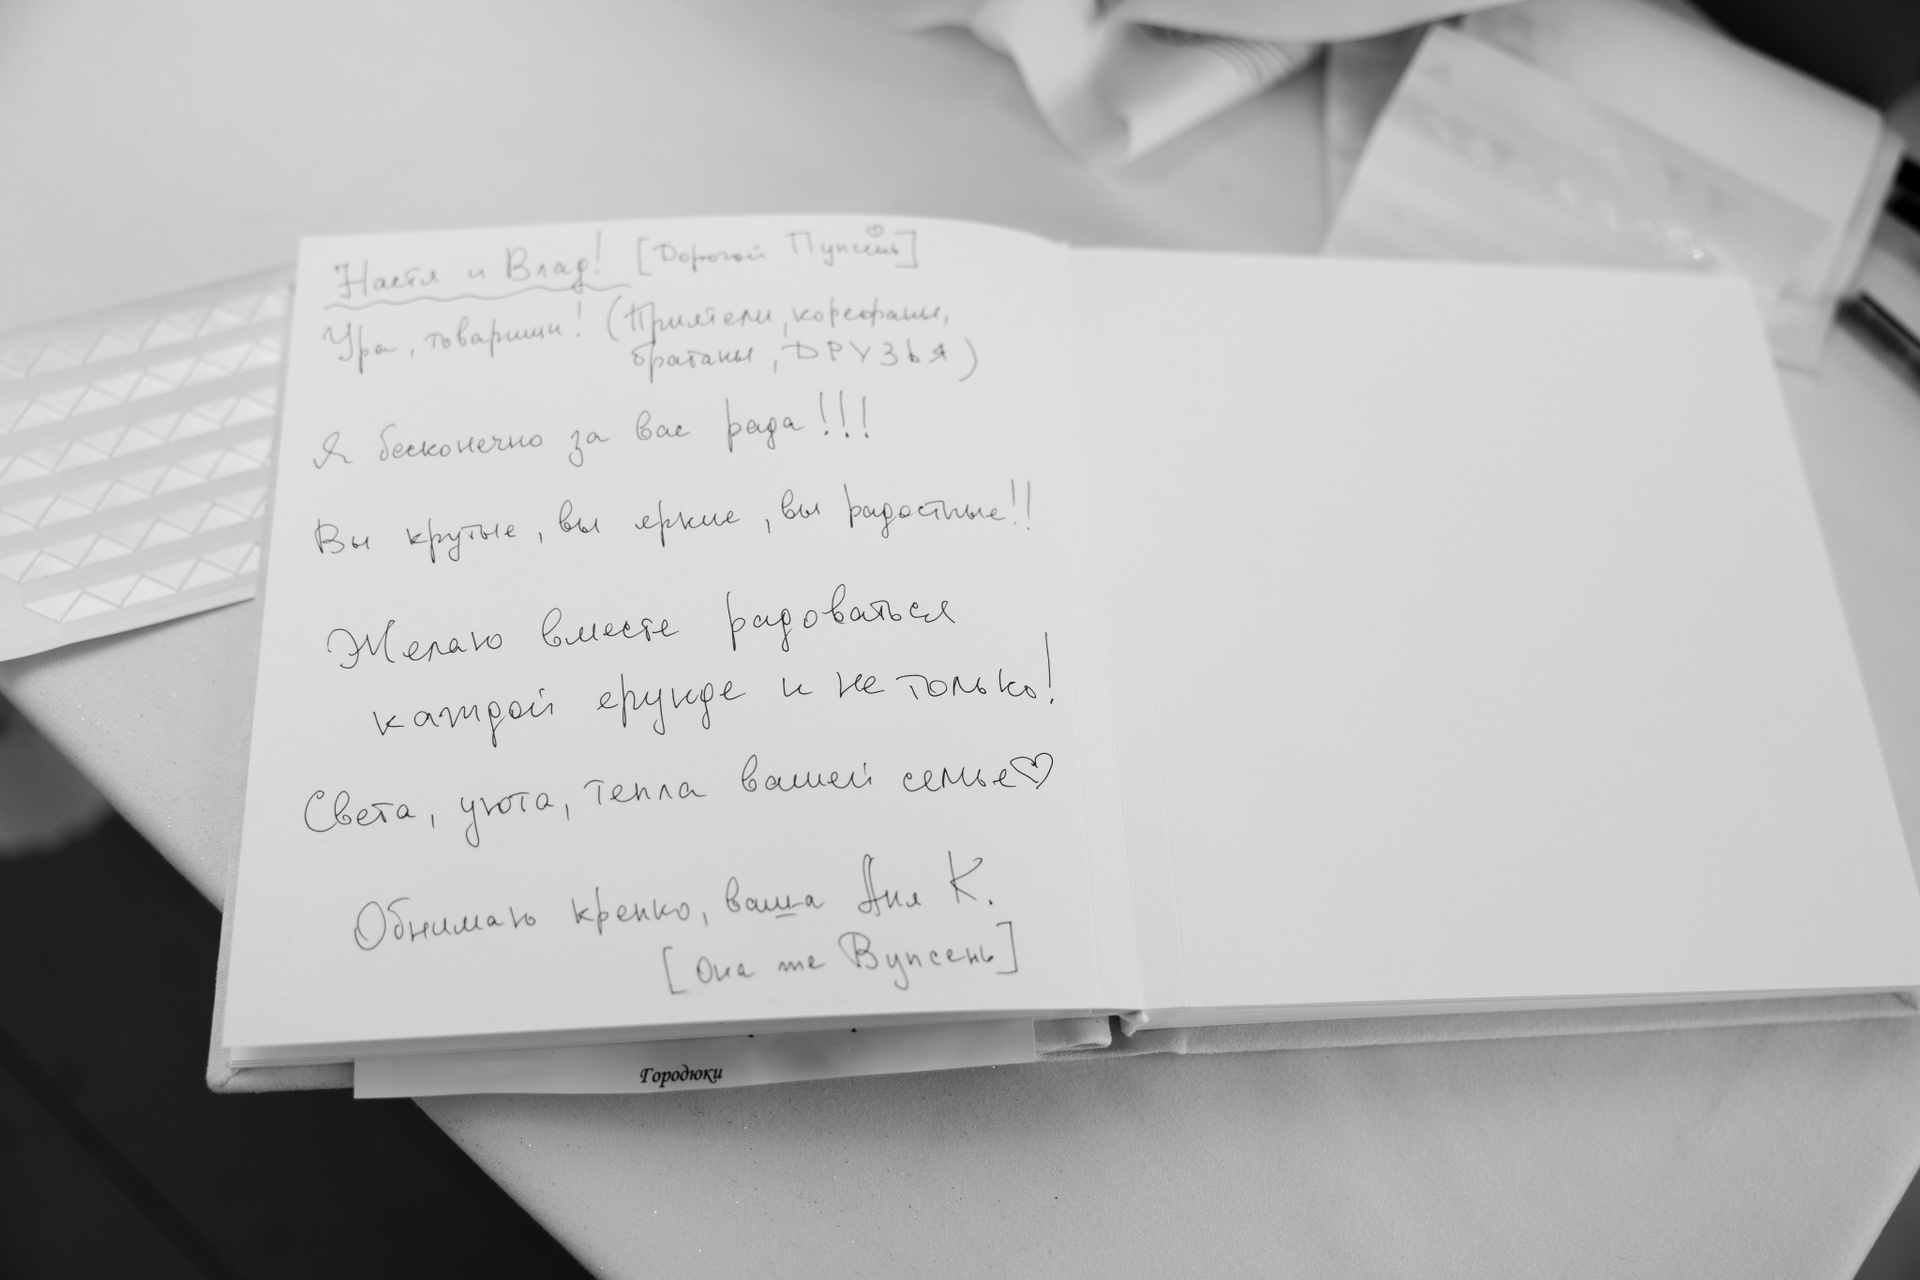 Настя и Влад! [Дорогой Пупсень]
Ура, товарищи! (Приятели, корефаны,
братаны, ДРУЗЬЯ)
Я бесконечно за вас рада!!!
Вы крутые, вы яркие, вы радостные!!
Желаю вместе радоваться
каждой ерунде и не только!
Света, уюта, тепла вашей семье♡
Обнимаю крепко, ваша Аня К.
[Она же Вупсень]
Городюки